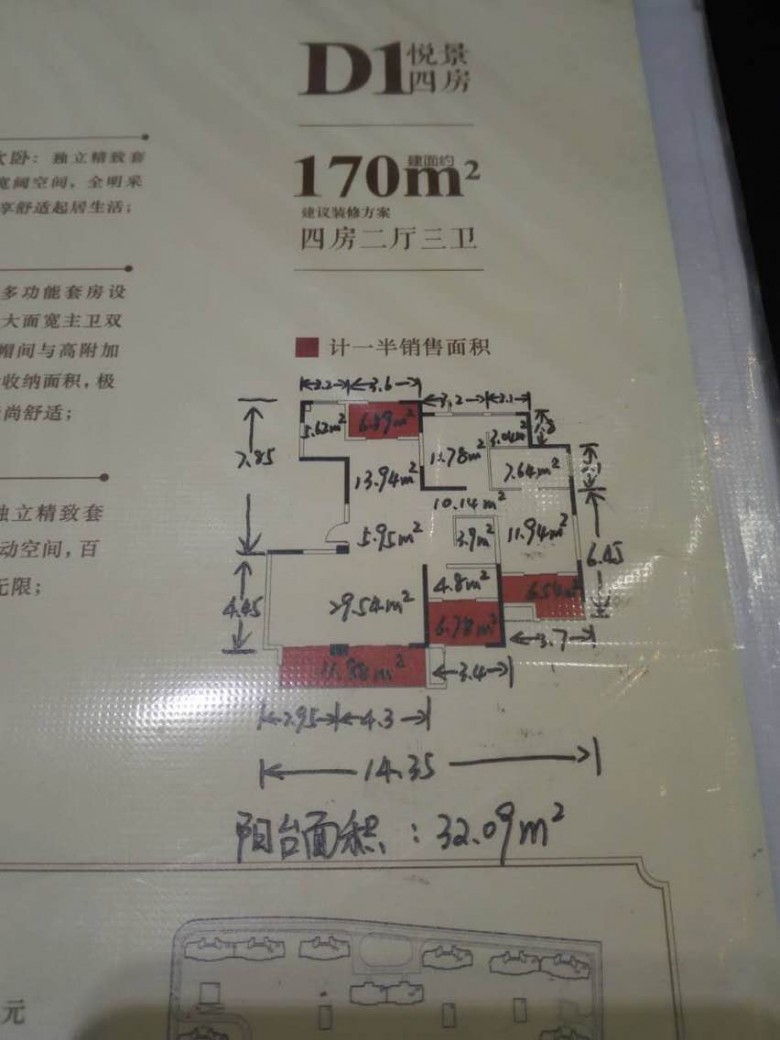 D1 悦景
四房
建面约
170m²
建议装修方案
四房二厅三卫
卧：独立精致套
宽阔空间，全明采
享舒适起居生活；
多功能套房设
大面宽主卫双
帽间与高附加
收纳面积，极
尚舒适；
独立精致套
动空间，百
无限；
计一半销售面积
3.6
3.2
5.62m²
6.89m²
11.78m²
3.04m²
7.85
13.94m²
7.64m²
10.14m²
5.95m²
3.9m²
11.94m²
6.45
4.8m²
6.54m²
4.45
29.54m²
6.78m²
3.7
11.88m²
3.4
2.95
4.3
14.35
阳台面积：32.09m²
元